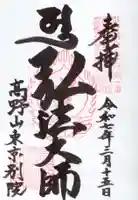 奉拝
令和七年三月十五日
弘法大師
高野山東京別院